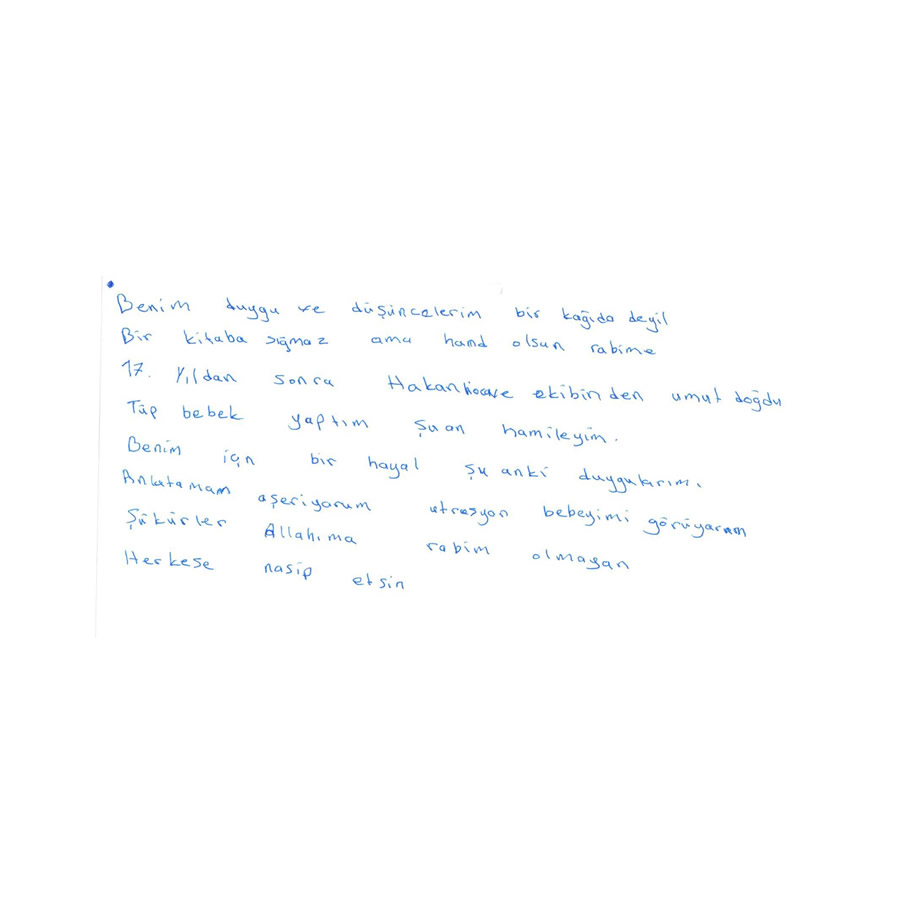 Benim duygu ve düşüncelerim bir kağıda deyil
Bir kitaba sığmaz ama hand olsun rabime
17. Yıldan sonra Hakan hocave ekibinden umut doğdu
Tüp bebek yaptım şuan hamileyim.
Benim için bir hayal şu anki duygularımı
Anlatamam aşeriyorum utrasyon bebeyimi görüyorum
Şükürler Allahıma rabim olmayan
Herkese nasip etsin